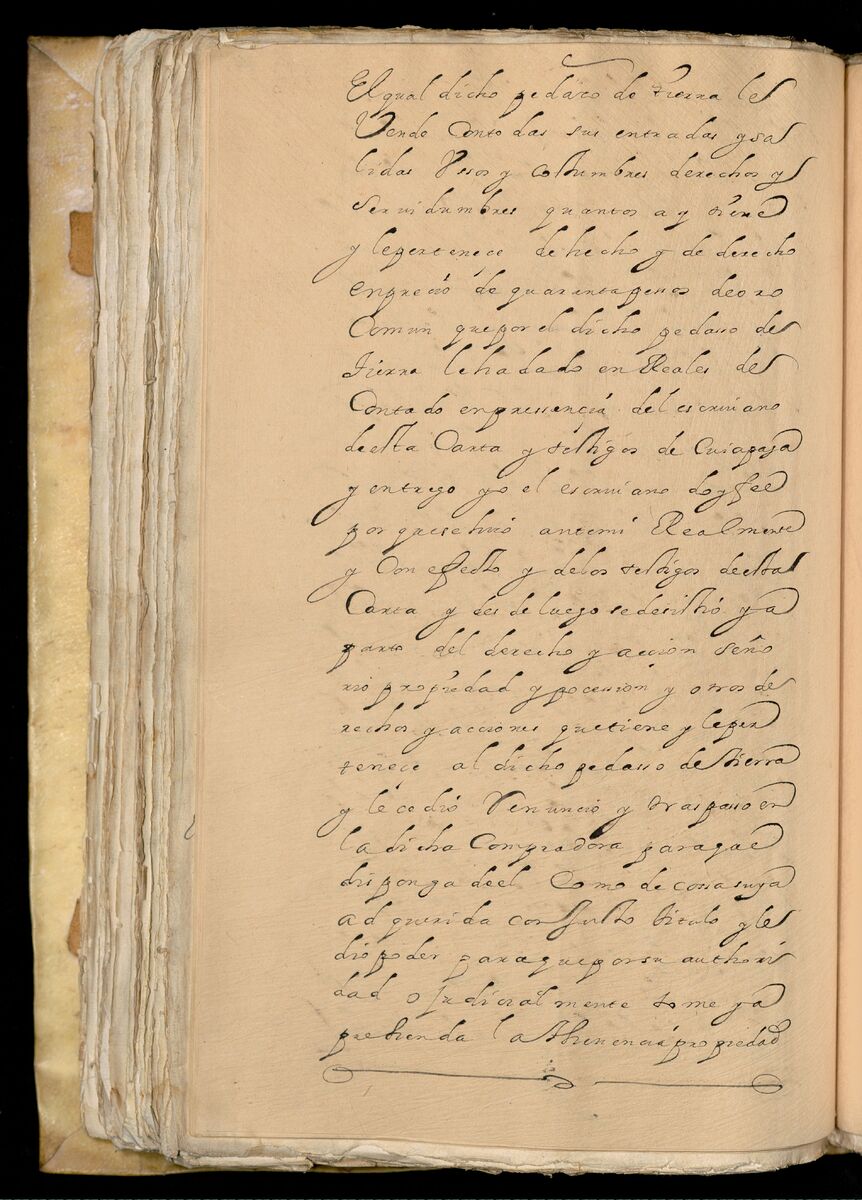 El qual dicho pedaco de tierra les
Vende Con todas sus entradas y sa
lidas Vsos y costumbres derechos y
servidumbres quantos a y tiene
y le pertenece de hecho y de derecho
en precio de quarenta pesos de oro
Comun que por el dicho pedasso de
tierra le ha dado en Reales de
Contado en pressençia del escriuano
desta Carta y testigos de Cuia paga
y entrego yo el escriuano doy fee
por que se hiço ante mi Realmente
y Con efecto y de los testigos desta
Carta y des de luego se desistió y a
parto del derecho y accion seño
rio propiedad y pocession y otros de
rechos y acciones que tiene y le per
tenece al dicho pedasso de tierra
y le cedió Renunció y traspasso en
la dicha Compradora para que
disponga deel Como de cossa suya
ad querida con justo titulo y les
dio poder para que por su authori
dad o Judicialmente tome y a
prehenda la thenencia propiedad